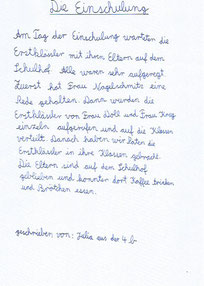 Die Einschulung
Am Tag der Einschulung warteten die
Erstklässler mit ihren Eltern auf dem
Schulhof. Alle waren sehr aufgeregt.
Zuerst hat Frau Nagelschmitz eine
Rede gehalten. Dann wurden die
Erstklässler von Frau Doll und Frau Krog
einzeln aufgerufen und auf die Klassen
verteilt. Danach haben wir Paten die
Erstklässler in ihre Klassen gebracht.
Die Eltern sind auf dem Schulhof
geblieben und konnten dort Kaffee trinken
und Brötchen essen.
geschrieben von: Julia aus der 4b